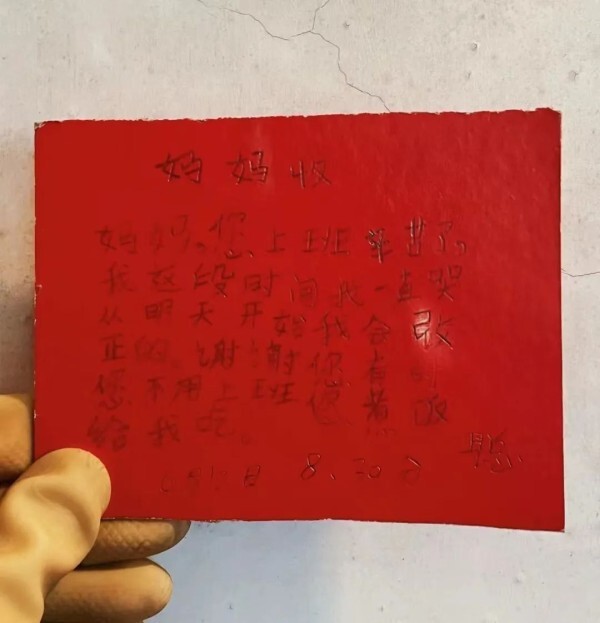 妈妈收
妈妈,您上班辛苦了,
我这段时间我一直哭
从明天开始我会改
正的。谢谢您有时
您不用上班您煮饭
给我吃。
8.30 聪